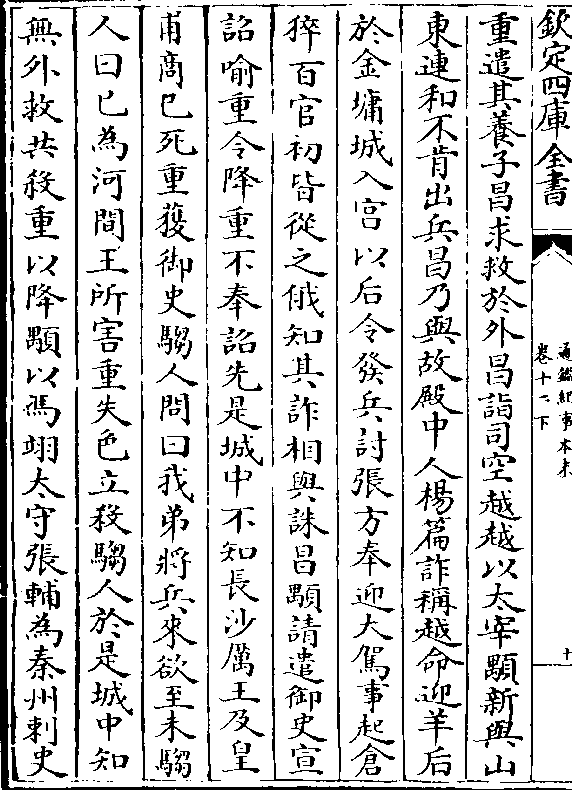 欽定四庫全書
通鑑紀事本末
卷十二下
十
重遣其養子昌求救於外昌詣司空越越以太宰顒新與山
東連和不肯出兵昌乃與故殿中人楊篇詐稱越命迎羊后
於金墉城入宫以后令發兵討張方奉迎大駕事起倉
猝百官初皆從之俄知其詐相與誅昌顒請遣御史宣
詔喻重令降重不奉詔先是城中不知長沙厲王及皇
甫商已死重獲御史騶人問曰我弟將兵來欲至未騶
人曰已為河間王所害重失色立殺騶人於是城中知
無外救共殺重以降顒以馮翊太守張輔為秦州刺史